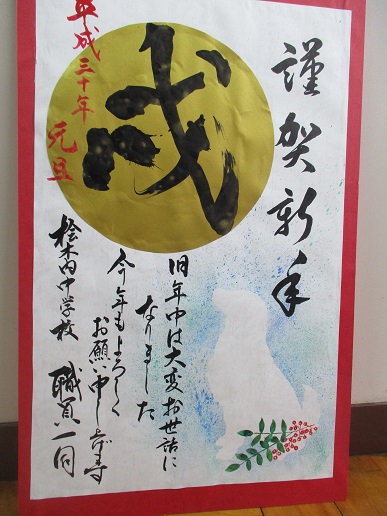 謹賀新年
戌
旧年中は大変お世話に
なりました
今年もよろしく
お願い申し上げます
平成三十年
元旦
桧木内中学校
職員一同